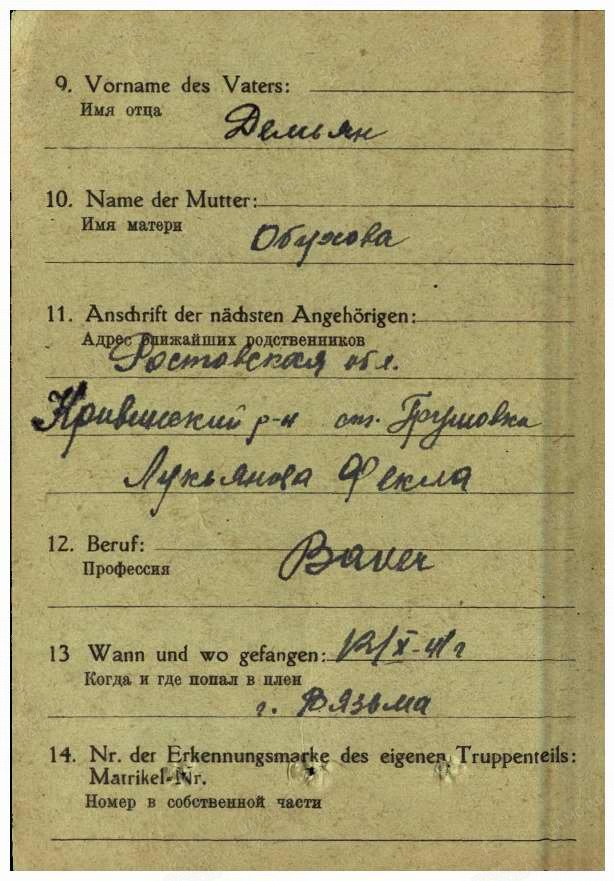 9. Vorname des Vaters:
Имя отца
Демьян
10. Name der Mutter:
Имя матери
Обухова
11. Anschrift der nächsten Angehörigen:
Адрес ближайших родственников
Ростовская обл.
р-н ст. Грушовка
Лукьянова Фекла
12. Beruf:
Bauer
Профессия
13 Wann und wo gefangen: 12/X-41 г
Когда и где попал в плен
г. Вязьма
14. Nr. der Erkennungsmarke des eigenen Truppenteils:
Matrikel-Nr.
Номер в собственной части